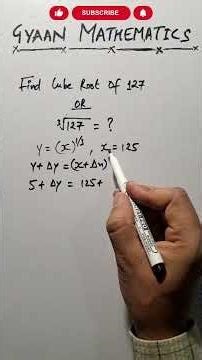 SUBSCRIBE
GYAAN MATHEMATICS
Find Cube Root of 127
OR
∛127 = ?
Y = (x)^{1/3}, x = 125
Y + Δy = (x + Δx)
5 + Δy = 125 +